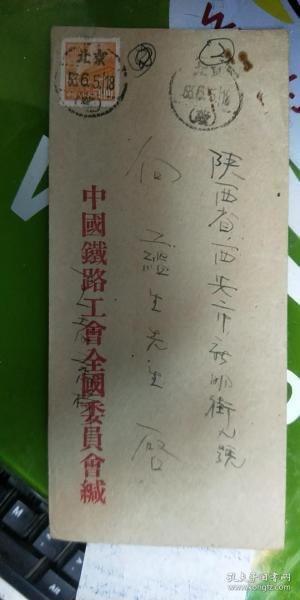 陕西省西安市新明街九號
向 生先生 啓
中國鐵路工會全國委員會緘
北京
53.6.5.18
53.6.5.18
孔夫子旧书网